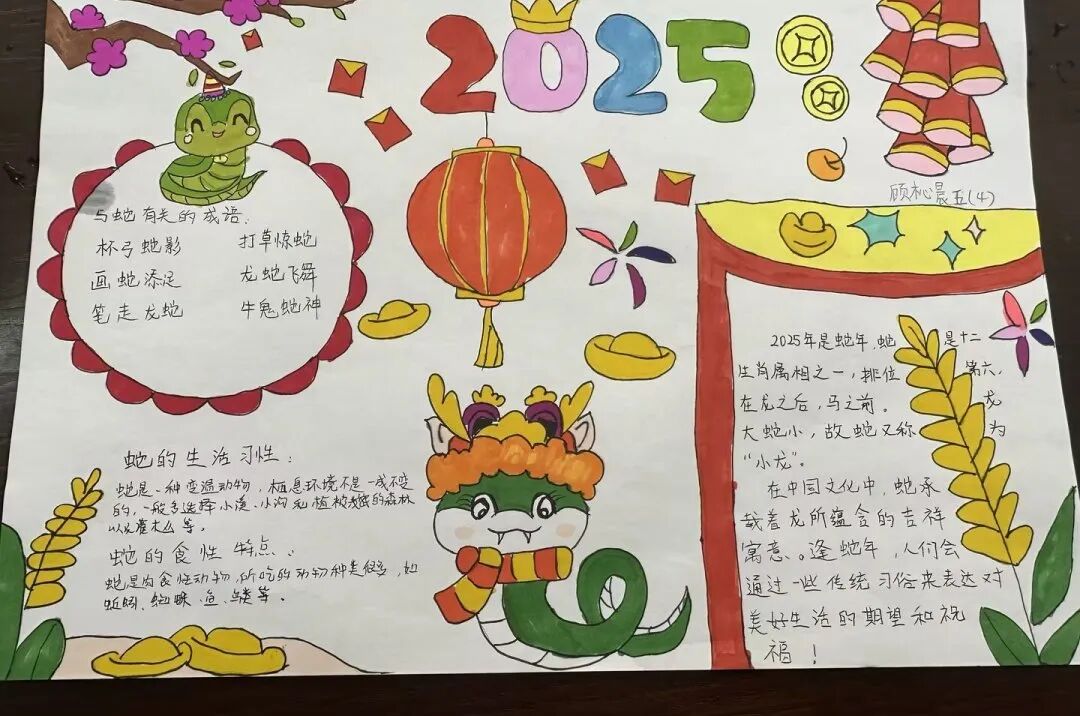 2025
顾松晨五(4)
与蛇有关的成语:
杯弓蛇影 打草惊蛇
画蛇添足 龙蛇飞舞
笔走龙蛇 牛鬼蛇神
蛇的生活习性:
蛇是一种变温动物,栖息环境不是一成不变
的,一般多选择小溪、小沟和植被茂密的森林
以及灌木丛等。
蛇的食性特点:
蛇是肉食性动物,所吃的动物种类很多,如
蚯蚓、蜘蛛、鱼、等。
2025年是蛇年,蛇是十二
生肖属相之一,排位第六,
在龙之后,马之前。龙
大蛇小,故蛇又称为
“小龙”。
在中国文化中,蛇承
载着龙所蕴含的吉祥
寓意。逢蛇年,人们会
通过一些传统习俗来表达对
美好生活的期望和祝
福!